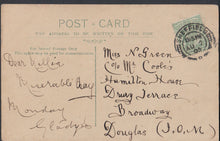 POST - CARD
THE ADDRESS ONLY TO BE WRITTEN ON THIS SIDE
Dear Nellie
Miserable day
Monday
Gladys
Miss N. Green
c/o Mrs Coole's
Hamilton House
Drury Terrace
Broadway
Douglas (I.O.M)